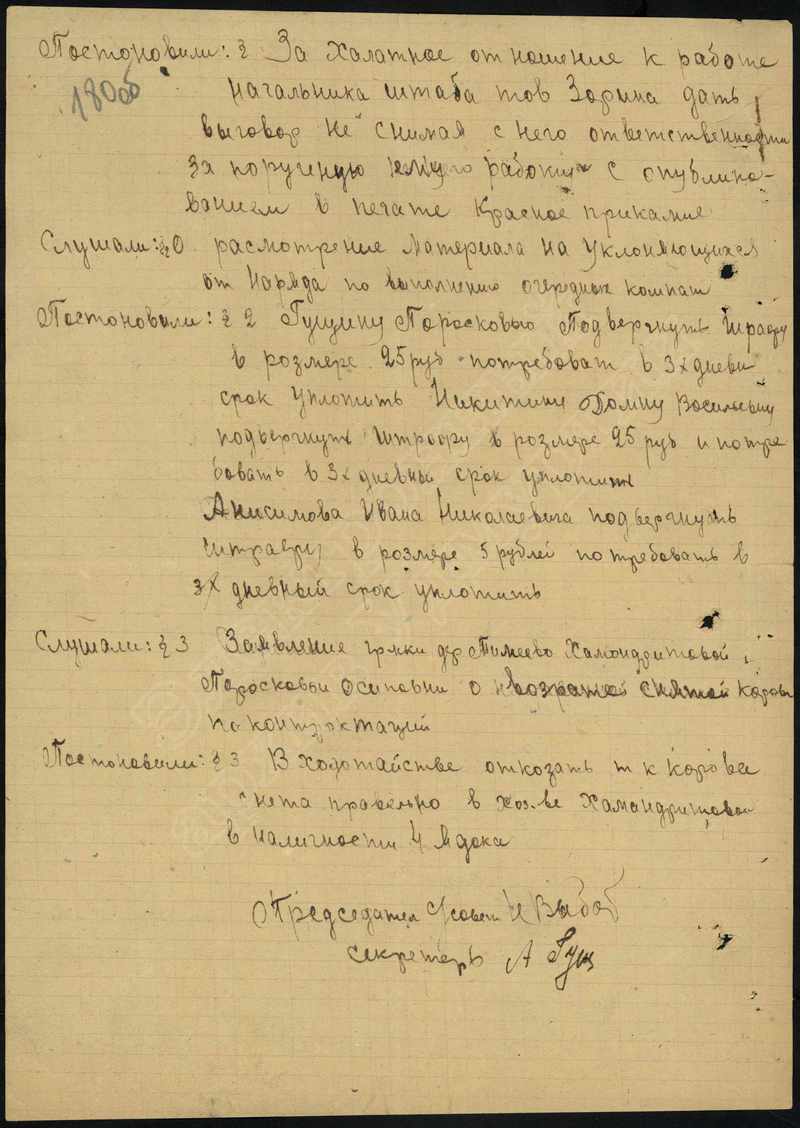 Постоновили: § За халатное отношение к работе
180об
начальника штаба тов Зорина дать
выговор не снимая с него ответственности
за поручену ему работу с опублико-
ванием в печате Красное прикамие
Слушали: § О расмотрение материала на уклоняющихся
от Наряда по выполнению очередных компат
Постоновили: § 2 Гущину Поросковью Подвергнуть Шрафу
в розмере 25 руб потребоват в 3х дневн
срок уплотить Никитину Домну Восильевну
подвергнуть штрофу в розмере 25 руб и потре
бовать в 3х дневный срок уплотить
Анисимова Ивана Николаевича подвергнуть
штрафу в розмере 5 рублей потребовать в
3х дневный срок уплотить
Слушали: § 3 Заявление гр-ки дер Тимеево Хамондритовой
Поросковьи Осиповны о возратой снятой коровы
по контроктаций
Постоновили: § 3 В ходотайстве откозать т к корова
нета правельно в хоз-ве Хамондритовой
в наличности 4 Едока
Председател С/совета Выбоб
секретерь А Гущ